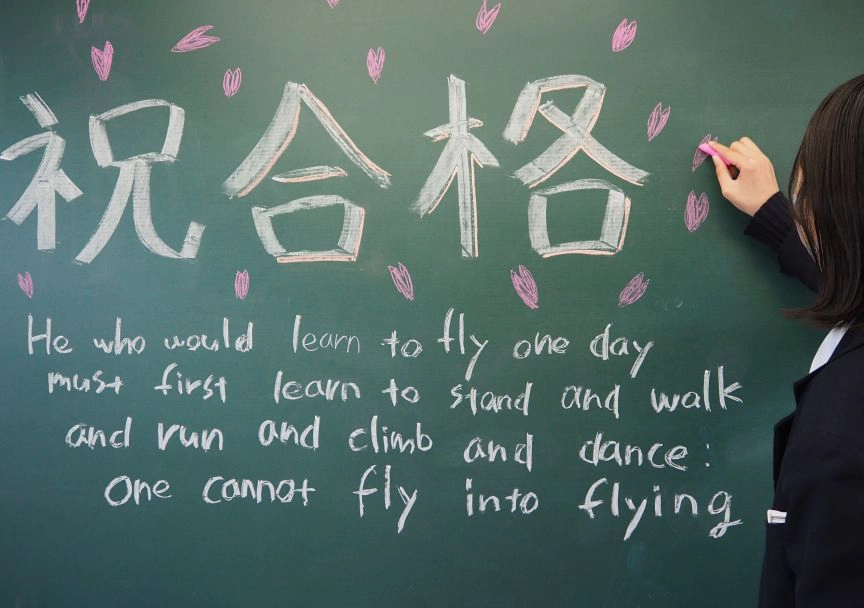 祝合格
He who would learn to fly one day
must first learn to stand and walk
and run and climb and dance:
One cannot fly into flying